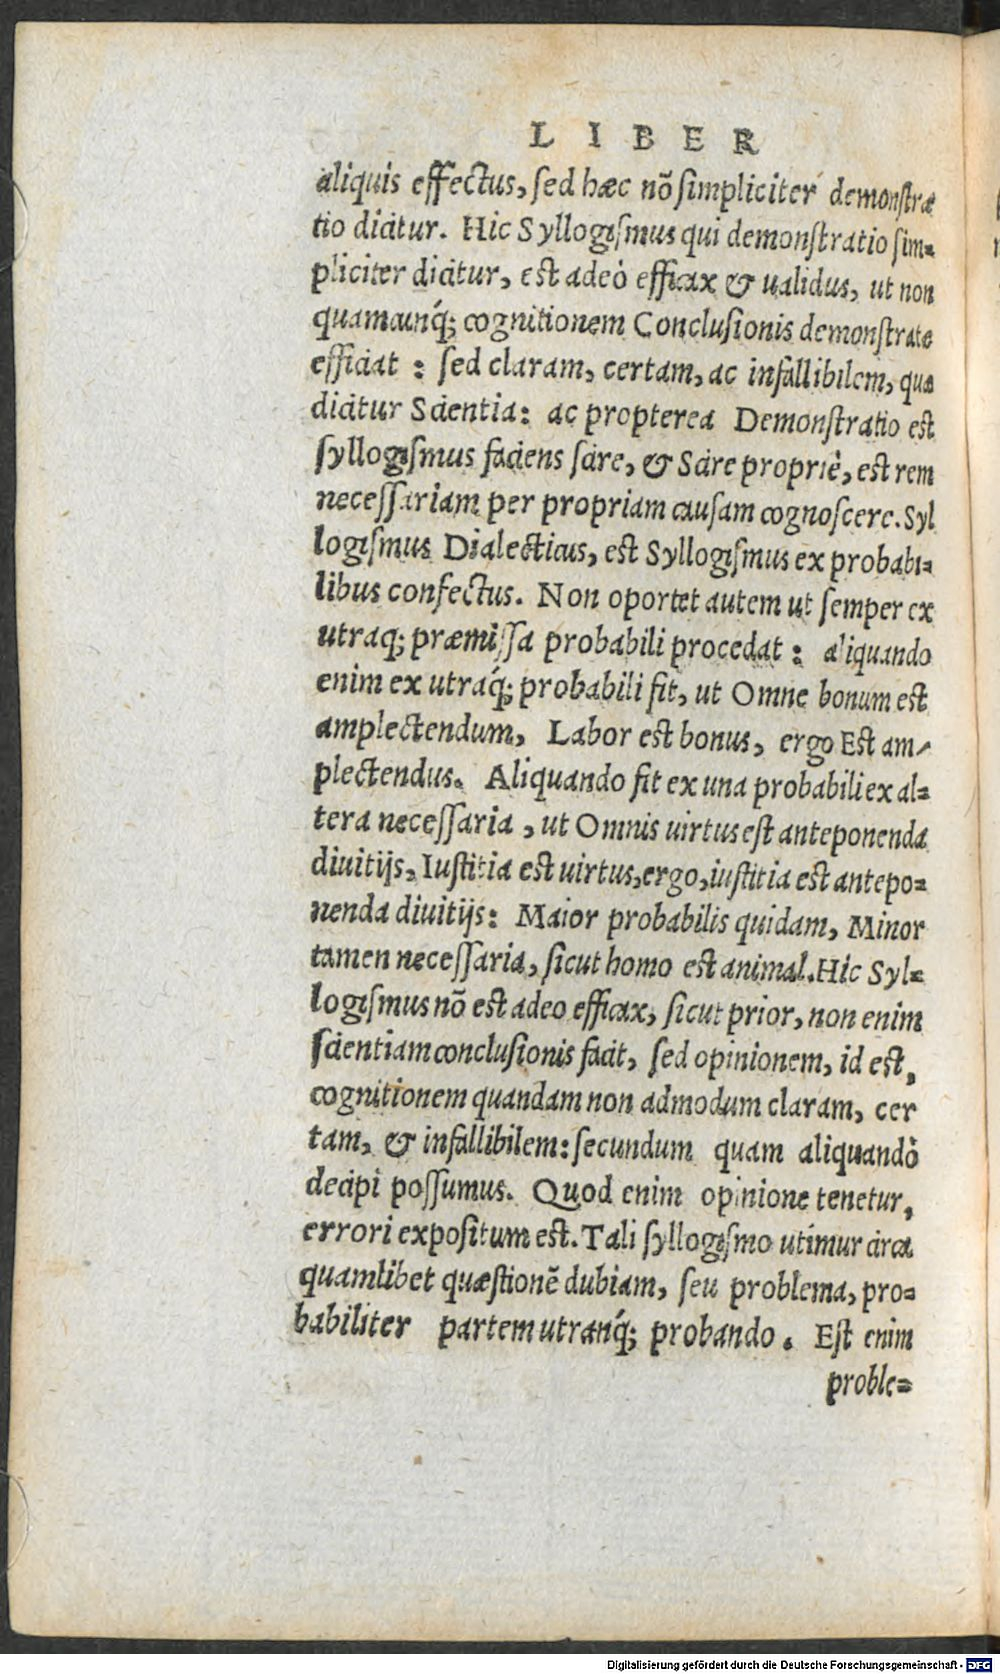 LIBER
aliquis effectus, sed hæc nõ simpliciter demonstra
tio dicitur. Hic Syllogismus qui demonstratio sim=
pliciter dicitur, est adeò efficax & ualidus, ut non
quamcunq́; cognitionem Conclusionis demonstratæ
efficiat : sed claram, certam, ac infallibilem, quæ
dicitur Scientia: ac propterea Demonstratio est
syllogismus faciens scire, & Scire propriè, est rem
necessariam per propriam causam cognoscere. Syl
logismus Dialecticus, est Syllogismus ex probabi=
libus confectus. Non oportet autem ut semper ex
utraq; præmissa probabili procedat : aliquando
enim ex utraq́; probabili fit, ut Omne bonum est
amplectendum, Labor est bonus, ergo Est am-
plectendus. Aliquando fit ex una probabili ex al=
tera necessaria , ut Omnis uirtus est anteponenda
diuitijs, Iustitia est uirtus, ergo, iustitia est antepo=
nenda diuitijs: Maior probabilis quidam, Minor
tamen necessaria, sicut homo est animal. Hic Syl=
logismus nõ est adeo efficax, sicut prior, non enim
scientiam conclusionis facit, sed opinionem, id est,
cognitionem quandam non admodum claram, cer
tam, & infallibilem: secundum quam aliquandò
decipi possumus. Quod enim opinione tenetur,
errori expositum est. Tali syllogismo utimur circa
quamlibet quæstionẽ dubiam, seu problema, pro=
babiliter partem utranq́; probando. Est enim
proble=
Digitalisierung gefördert durch die Deutsche Forschungsgemeinschaft - DFG